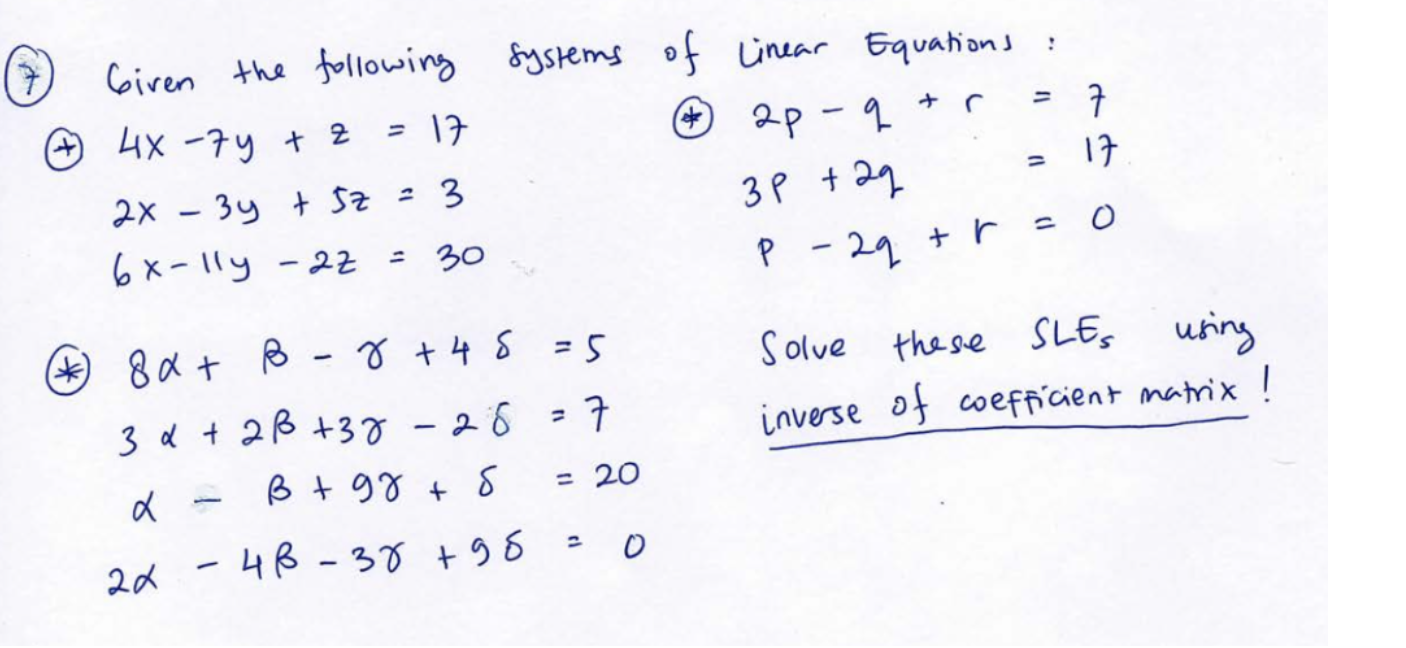 7 Given the following systems of Linear Equations :
* 4x - 7y + z = 17
2x - 3y + 5z = 3
6x - 11y - 2z = 30
* 2p - q + r = 7
3p + 2q = 17
p - 2q + r = 0
* 8α + β - γ + 4δ = 5
3α + 2β + 3γ - 2δ = 7
α - β + 9γ + δ = 20
2α - 4β - 3γ + 9δ = 0
Solve these SLEs using
inverse of coefficient matrix !